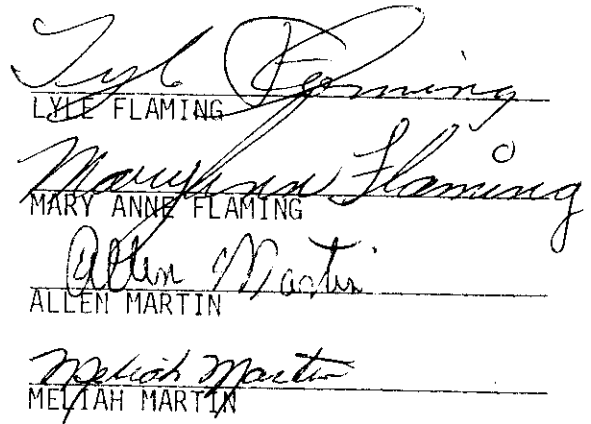 Lyle Flaming
LYLE FLAMING
Maryann Flaming
MARY ANNE FLAMING
Allen Martin
ALLEN MARTIN
Meliah Martin
MELIAH MARTIN